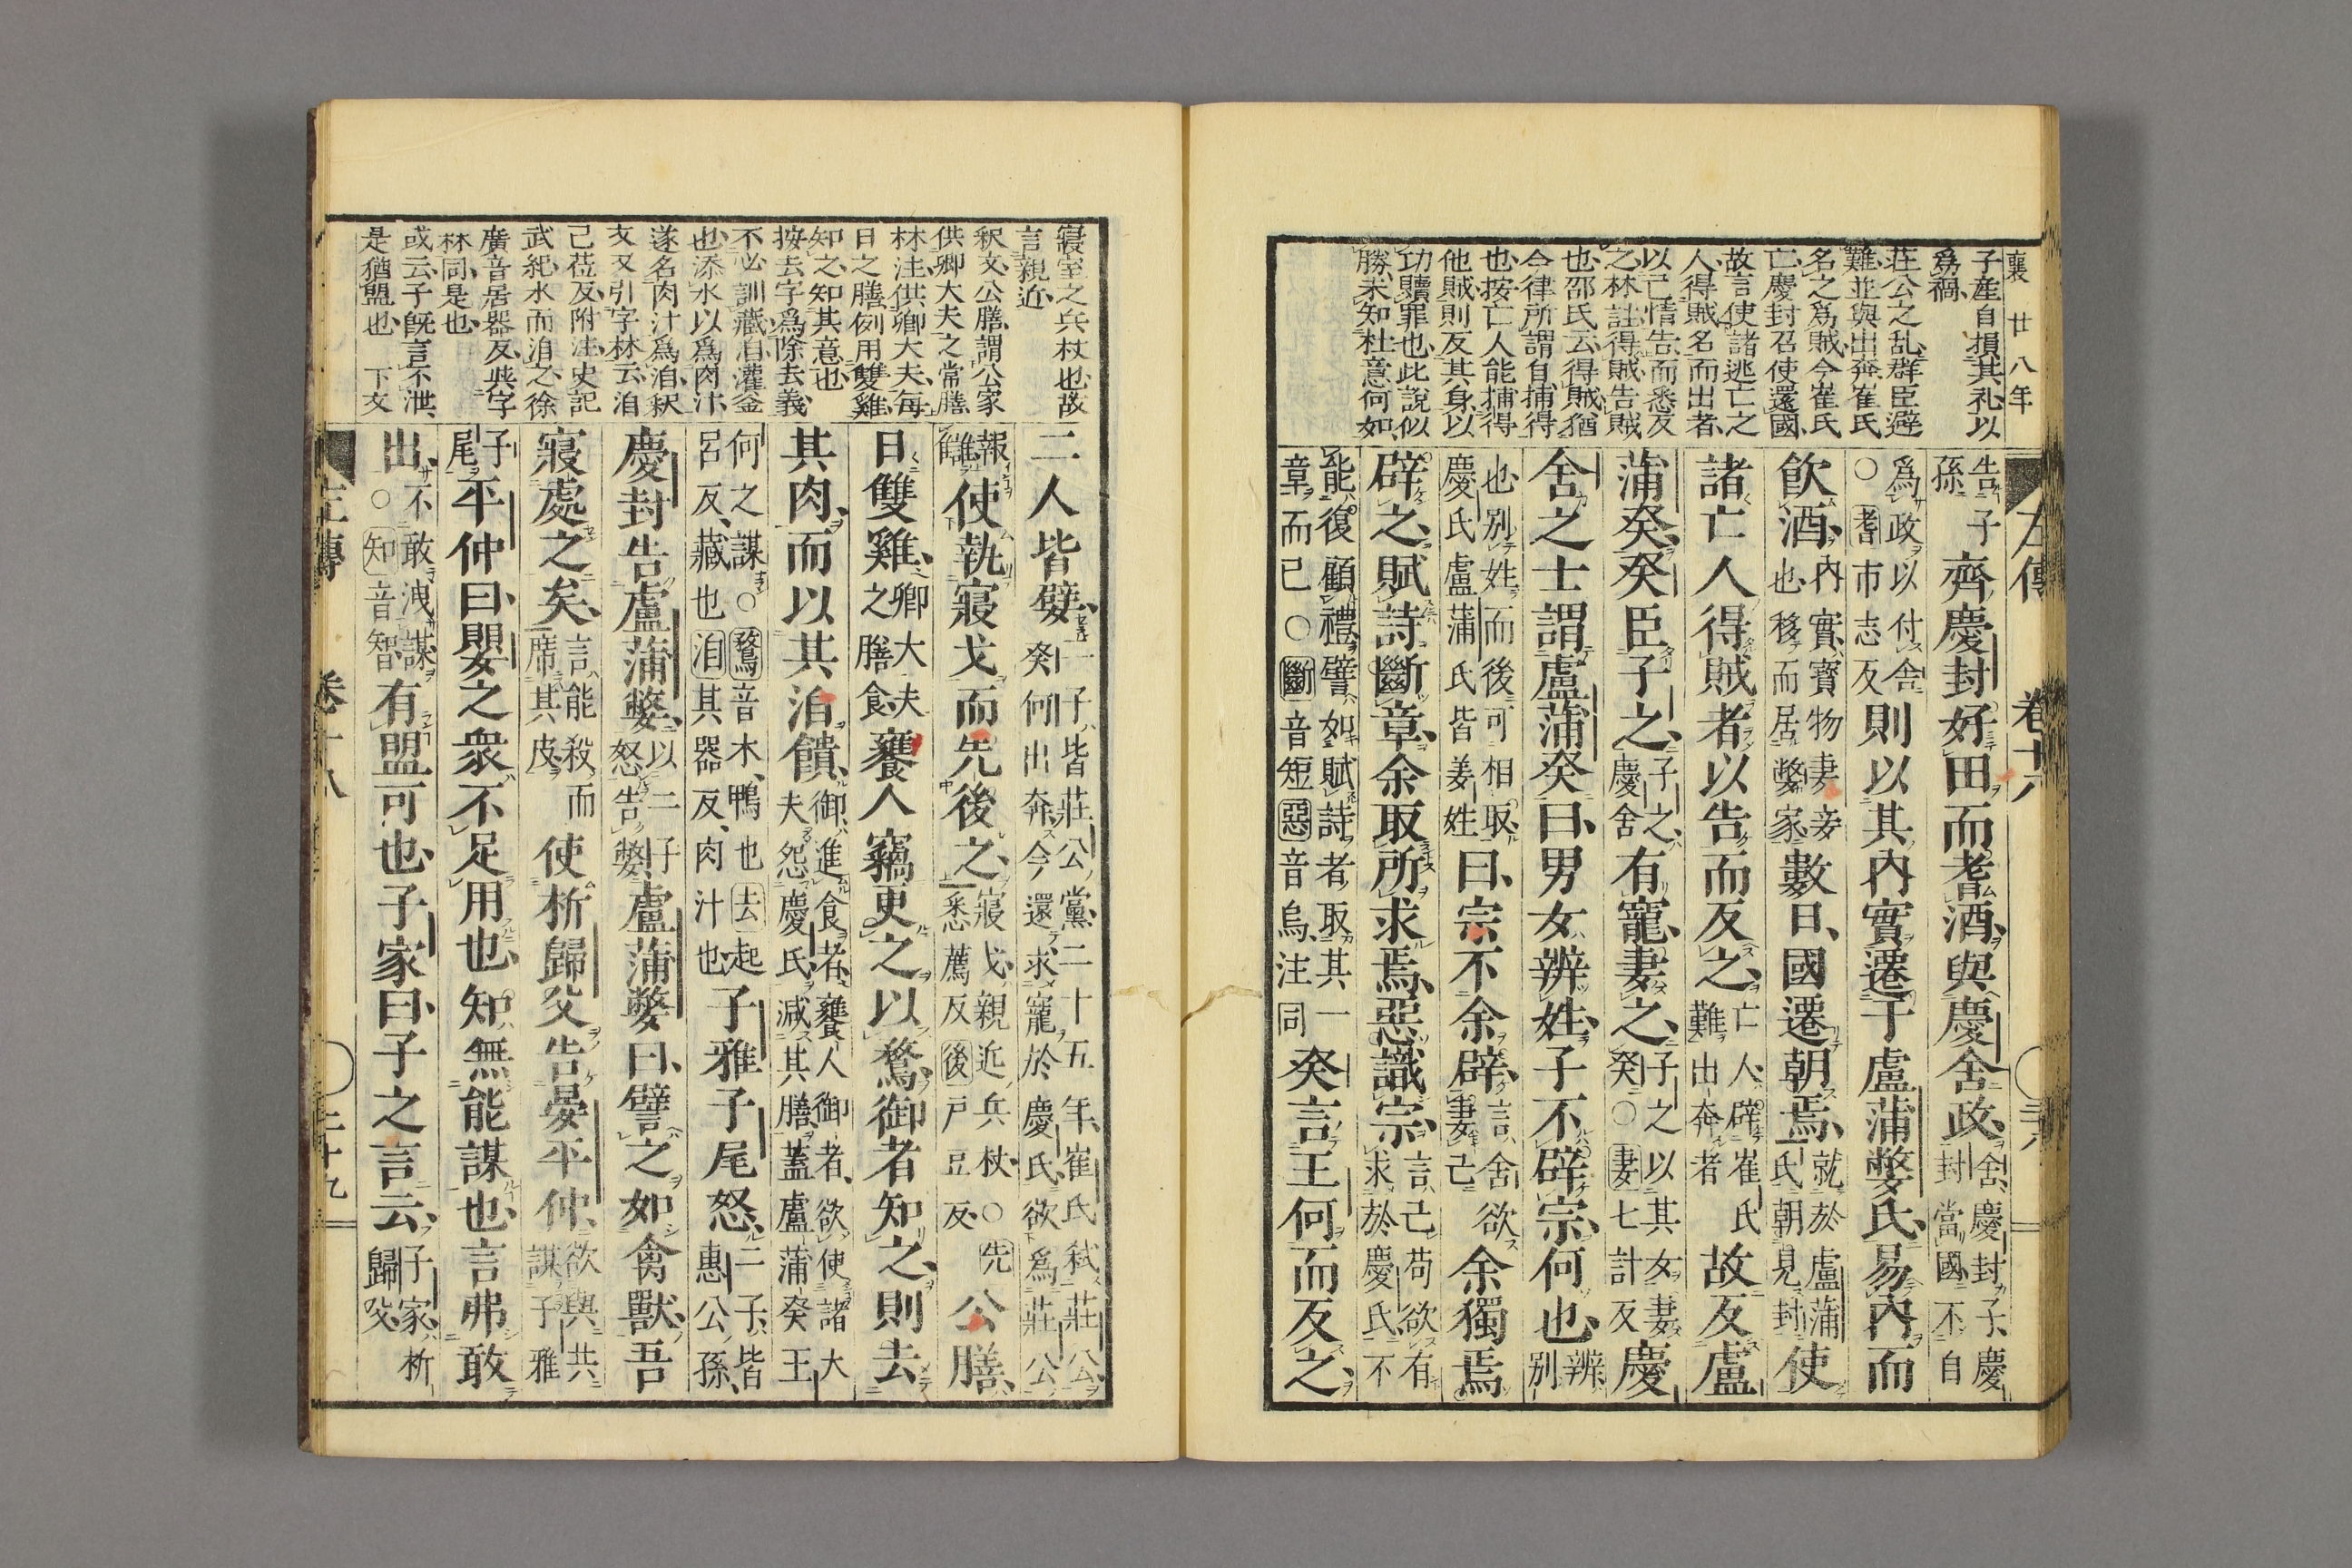 襄 廿八年
子産自損其礼以
爲禍
莊公之乱群臣避
難並與出奔崔氏
名之爲賊今崔氏
亡慶封召使還國
故言使諸逃亡之
人得賊名而出者
以己情告而悉反
之林註得賊告賊
也邵氏云得賊猶
今律所謂自捕得
也按亡人能捕得
他賊則反其身以
功贖罪也此說似
勝未知杜意何如
左傳 卷十八
告子孫齊慶封好田而耆酒與慶舍政舍慶封子慶封當國不自
爲政以付舍○耆市志反則以其內實遷于盧蒲嫳氏易內而
飲酒內實寶物妻妾也移而居嫳家數日國遷朝焉就於盧蒲氏朝見封使
諸亡人得賊者以告而反之亡人辟崔氏難出奔者故反盧
蒲癸癸臣子之子之慶舍有寵妻之子之以其女妻癸○妻七計反慶
舍之士謂盧蒲癸曰男女辨姓子不辟宗何也辨別
也別姓而後可相取慶氏盧蒲氏皆姜姓曰宗不余辟言舍欲妻己余獨焉
辟之賦詩斷章余取所求焉惡識宗言己苟欲有求於慶氏不
能復顧禮譬如賦詩者取其一章而已○斷音短惡音烏注同癸言王何而反之
寢室之兵杖也故
言親近
釈文公膳謂公家
供卿大夫之常膳
林注供卿大夫每
日之膳例用雙雞
知之知其意也
按去字爲除去義
不必訓藏洎灌釜
也添水以爲肉汁
遂名肉汁爲洎釈
文又引字林云洎
己莅反附注史記
武紀水而洎之徐
廣音居器反與字
林同是也
或云子旣言不泄
是猶盟也 下文
二人皆嬖二子皆莊公黨二十五年崔氏弑莊公癸何出奔今還求寵於慶氏欲爲莊公
報讎使執寢戈而先後之寢戈親近兵杖○先悉薦反後戸豆反公膳
日雙雞卿大夫之膳食饔人竊更之以鶩御者知之則去
其肉而以其洎饋御進食者饔人御者欲使諸大夫怨慶氏減其膳蓋盧蒲癸王
何之謀○鶩音木鴨也去起呂反藏也洎其器反肉汁也子雅子尾怒二子皆惠公孫
慶封告盧蒲嫳以二子怒告嫳盧蒲嫳曰譬之如禽獸吾
寢處之矣言能殺而席其皮使析歸父告晏平仲欲與共謀子雅
子尾平仲曰嬰之衆不足用也知無能謀也言弗敢
出不敢洩謀○知音智有盟可也子家曰子之言云子家析歸父
左傳 卷十八 二十九